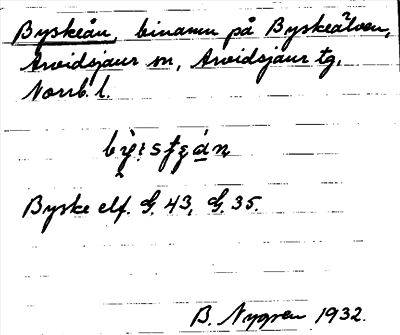 Byskeån, binamn på Byskeälven,
Arvidsjaur sn, Arvidsjaur tg,
Norrb. l.
Byske elf. G. 43, G. 35.
B. Nygren 1932.